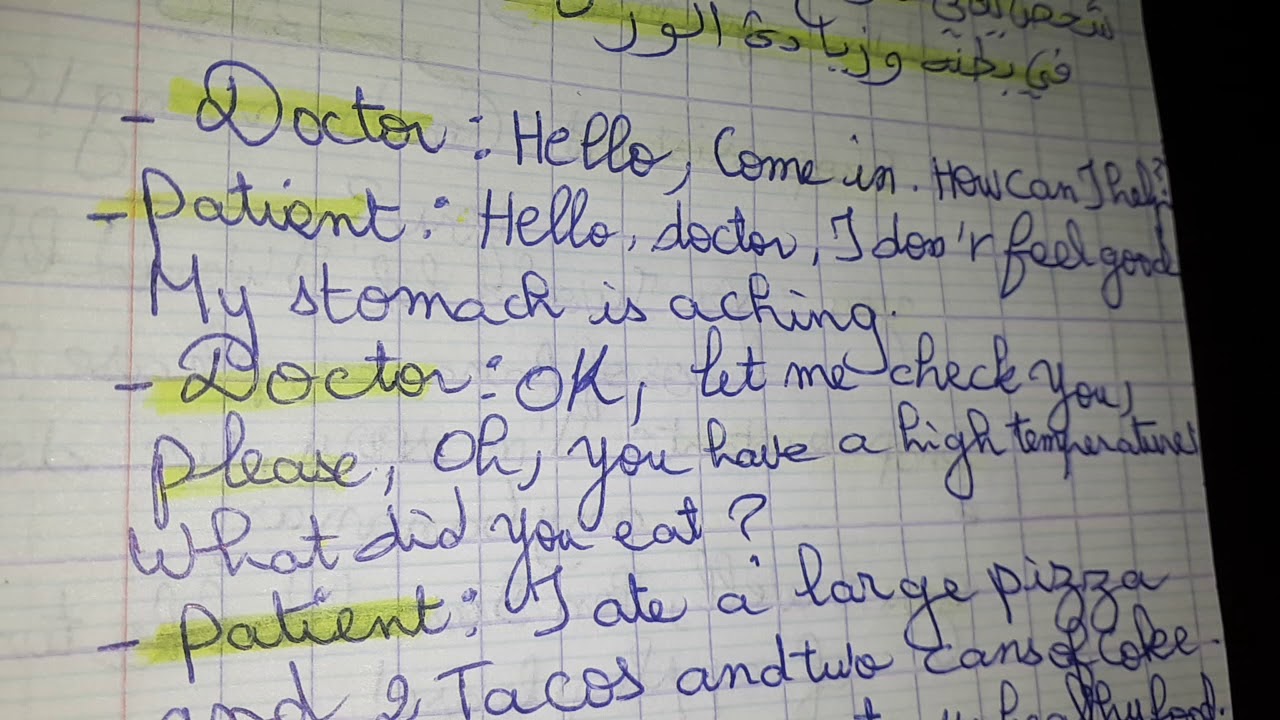 في بطنه وزيادة الوز
- Doctor : Hello, Come in. How can I help?
- Patient : Hello, doctor, I don't feel good
My stomach is aching.
- Doctor : OK, let me check you,
please, Oh, you have a high temperature
What did you eat ?
- Patient : I ate a large pizza
and 2 Tacos and two cans of Coke.